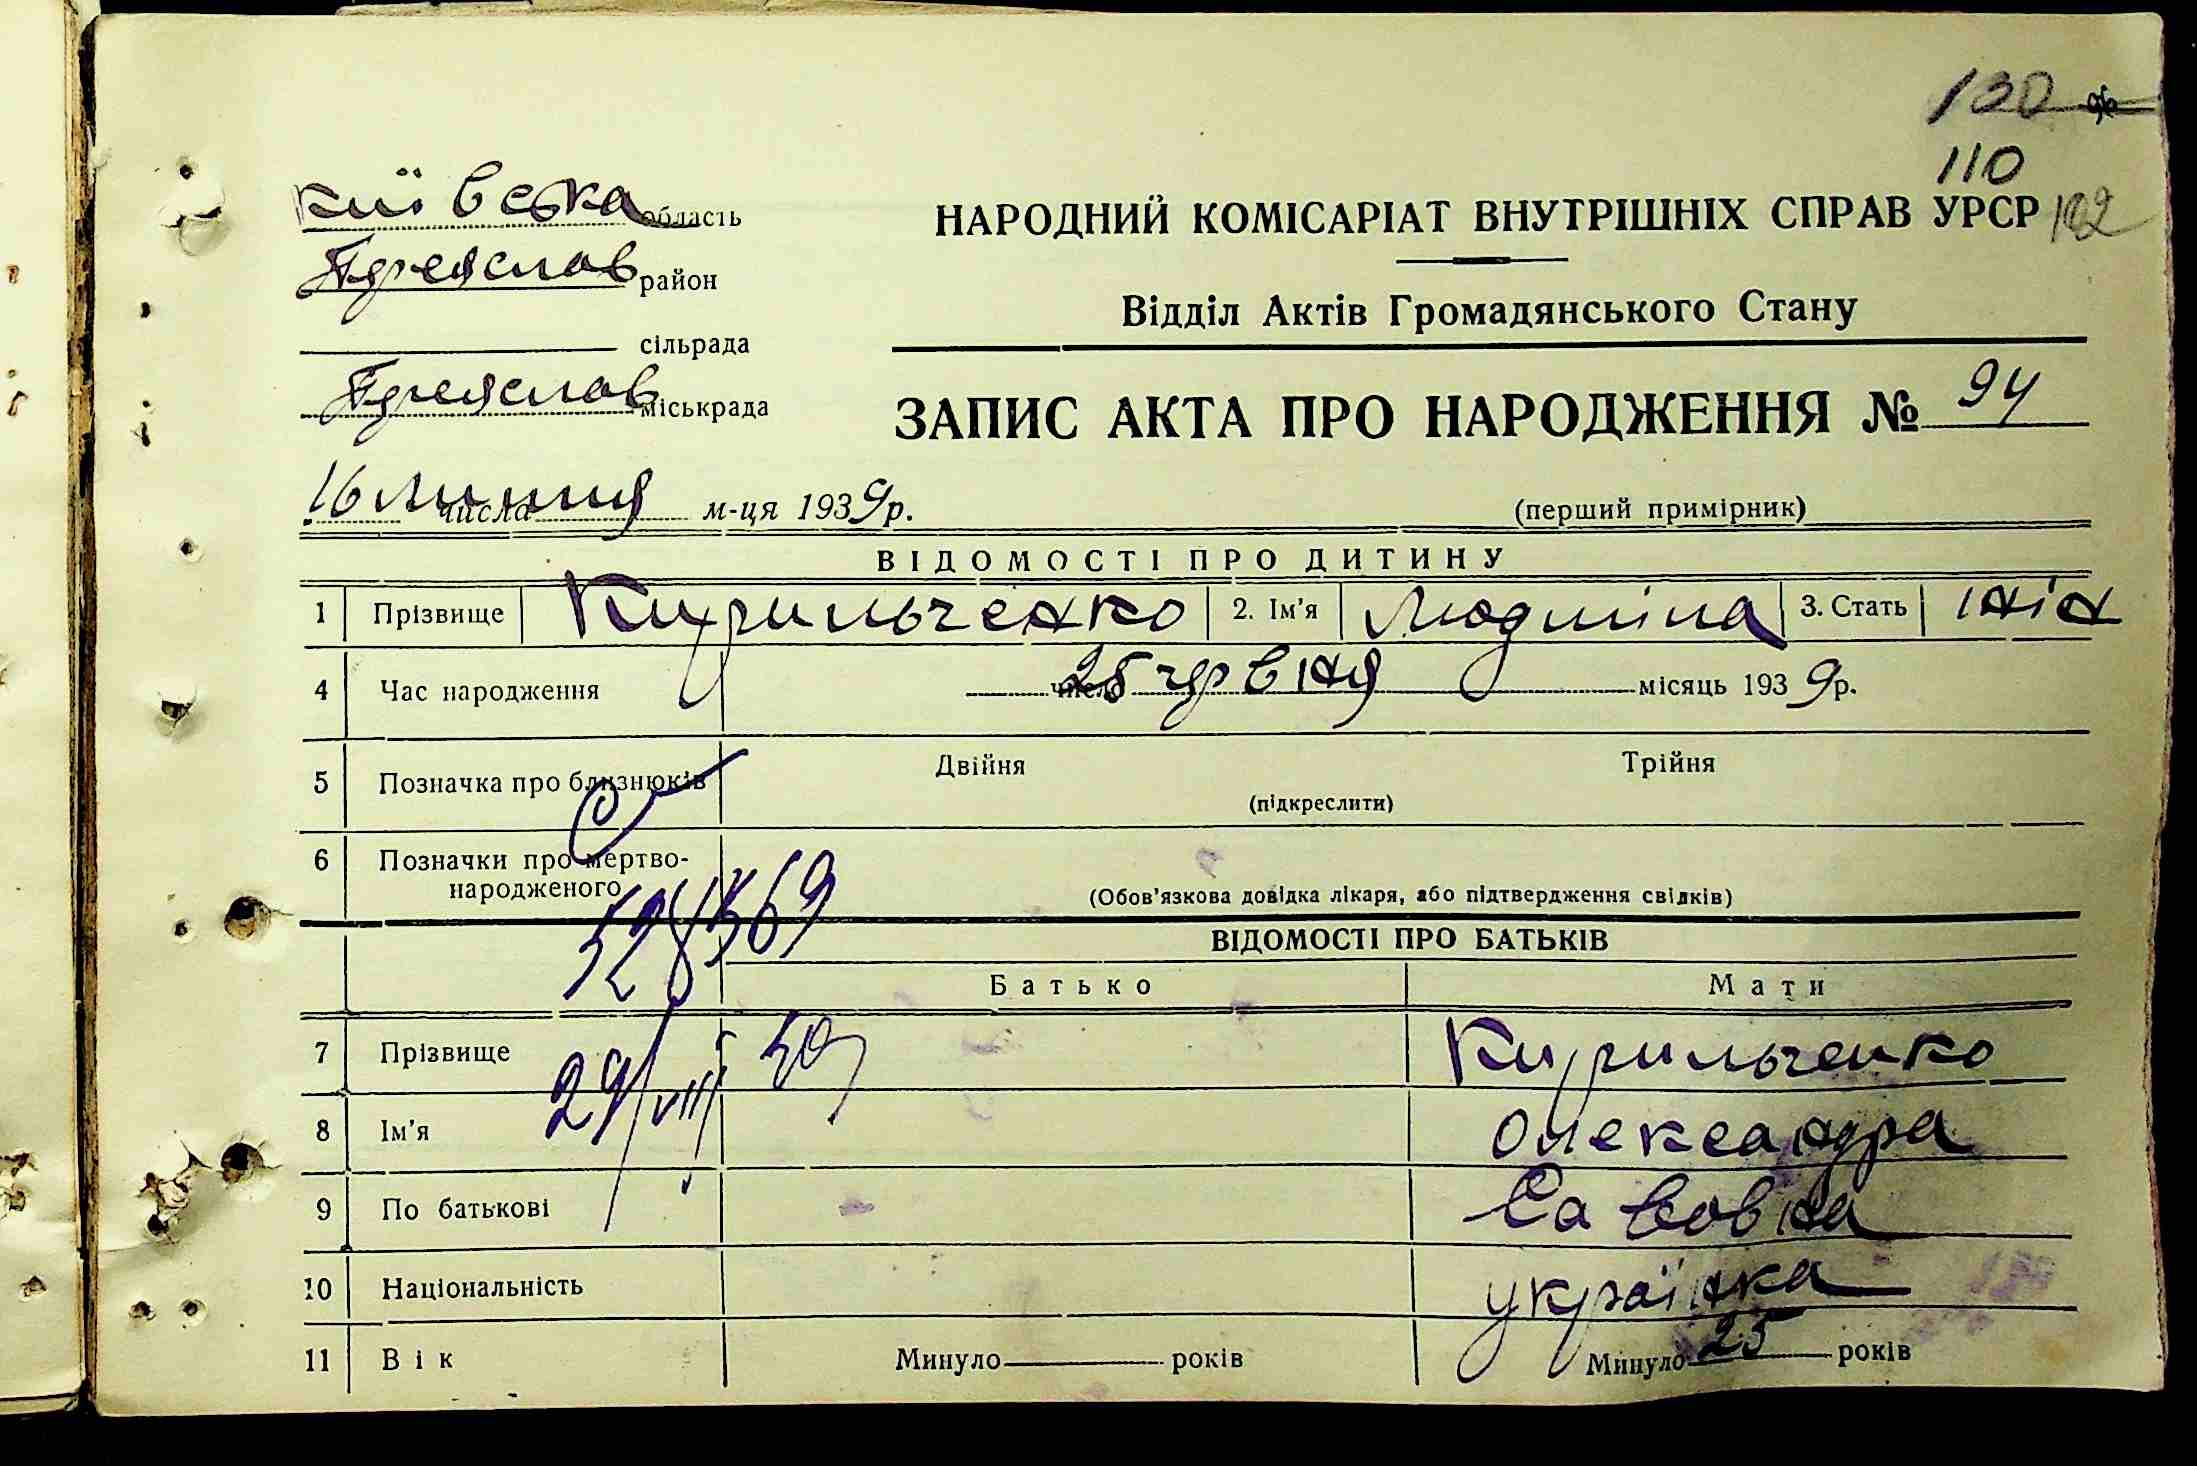 130
110
Київська область
НАРОДНИЙ КОМІСАРІАТ ВНУТРІШНІХ СПРАВ УРСР
Переяслав район
Відділ Актів Громадянського Стану
сільрада
Переяслав міськрада
ЗАПИС АКТА ПРО НАРОДЖЕННЯ № 94
16 числа липня м-ця 1939 р.
(перший примірник)
ВІДОМОСТІ ПРО ДИТИНУ
1 Прізвище Кирильченко 2. Ім'я Людмила 3. Стать жін
4 Час народження 25 число червня місяць 1939 р.
5 Позначка про близнюків Двійня Трійня
(підкреслити)
6 Позначки про мертво-
народженого
(Обов'язкова довідка лікаря, або підтвердження свідків)
ВІДОМОСТІ ПРО БАТЬКІВ
Батько Мати
7 Прізвище Кирильченко
8 Ім'я Олександра
9 По батькові Савовна
10 Національність українка
11 Вік Минуло років Минуло 25 років